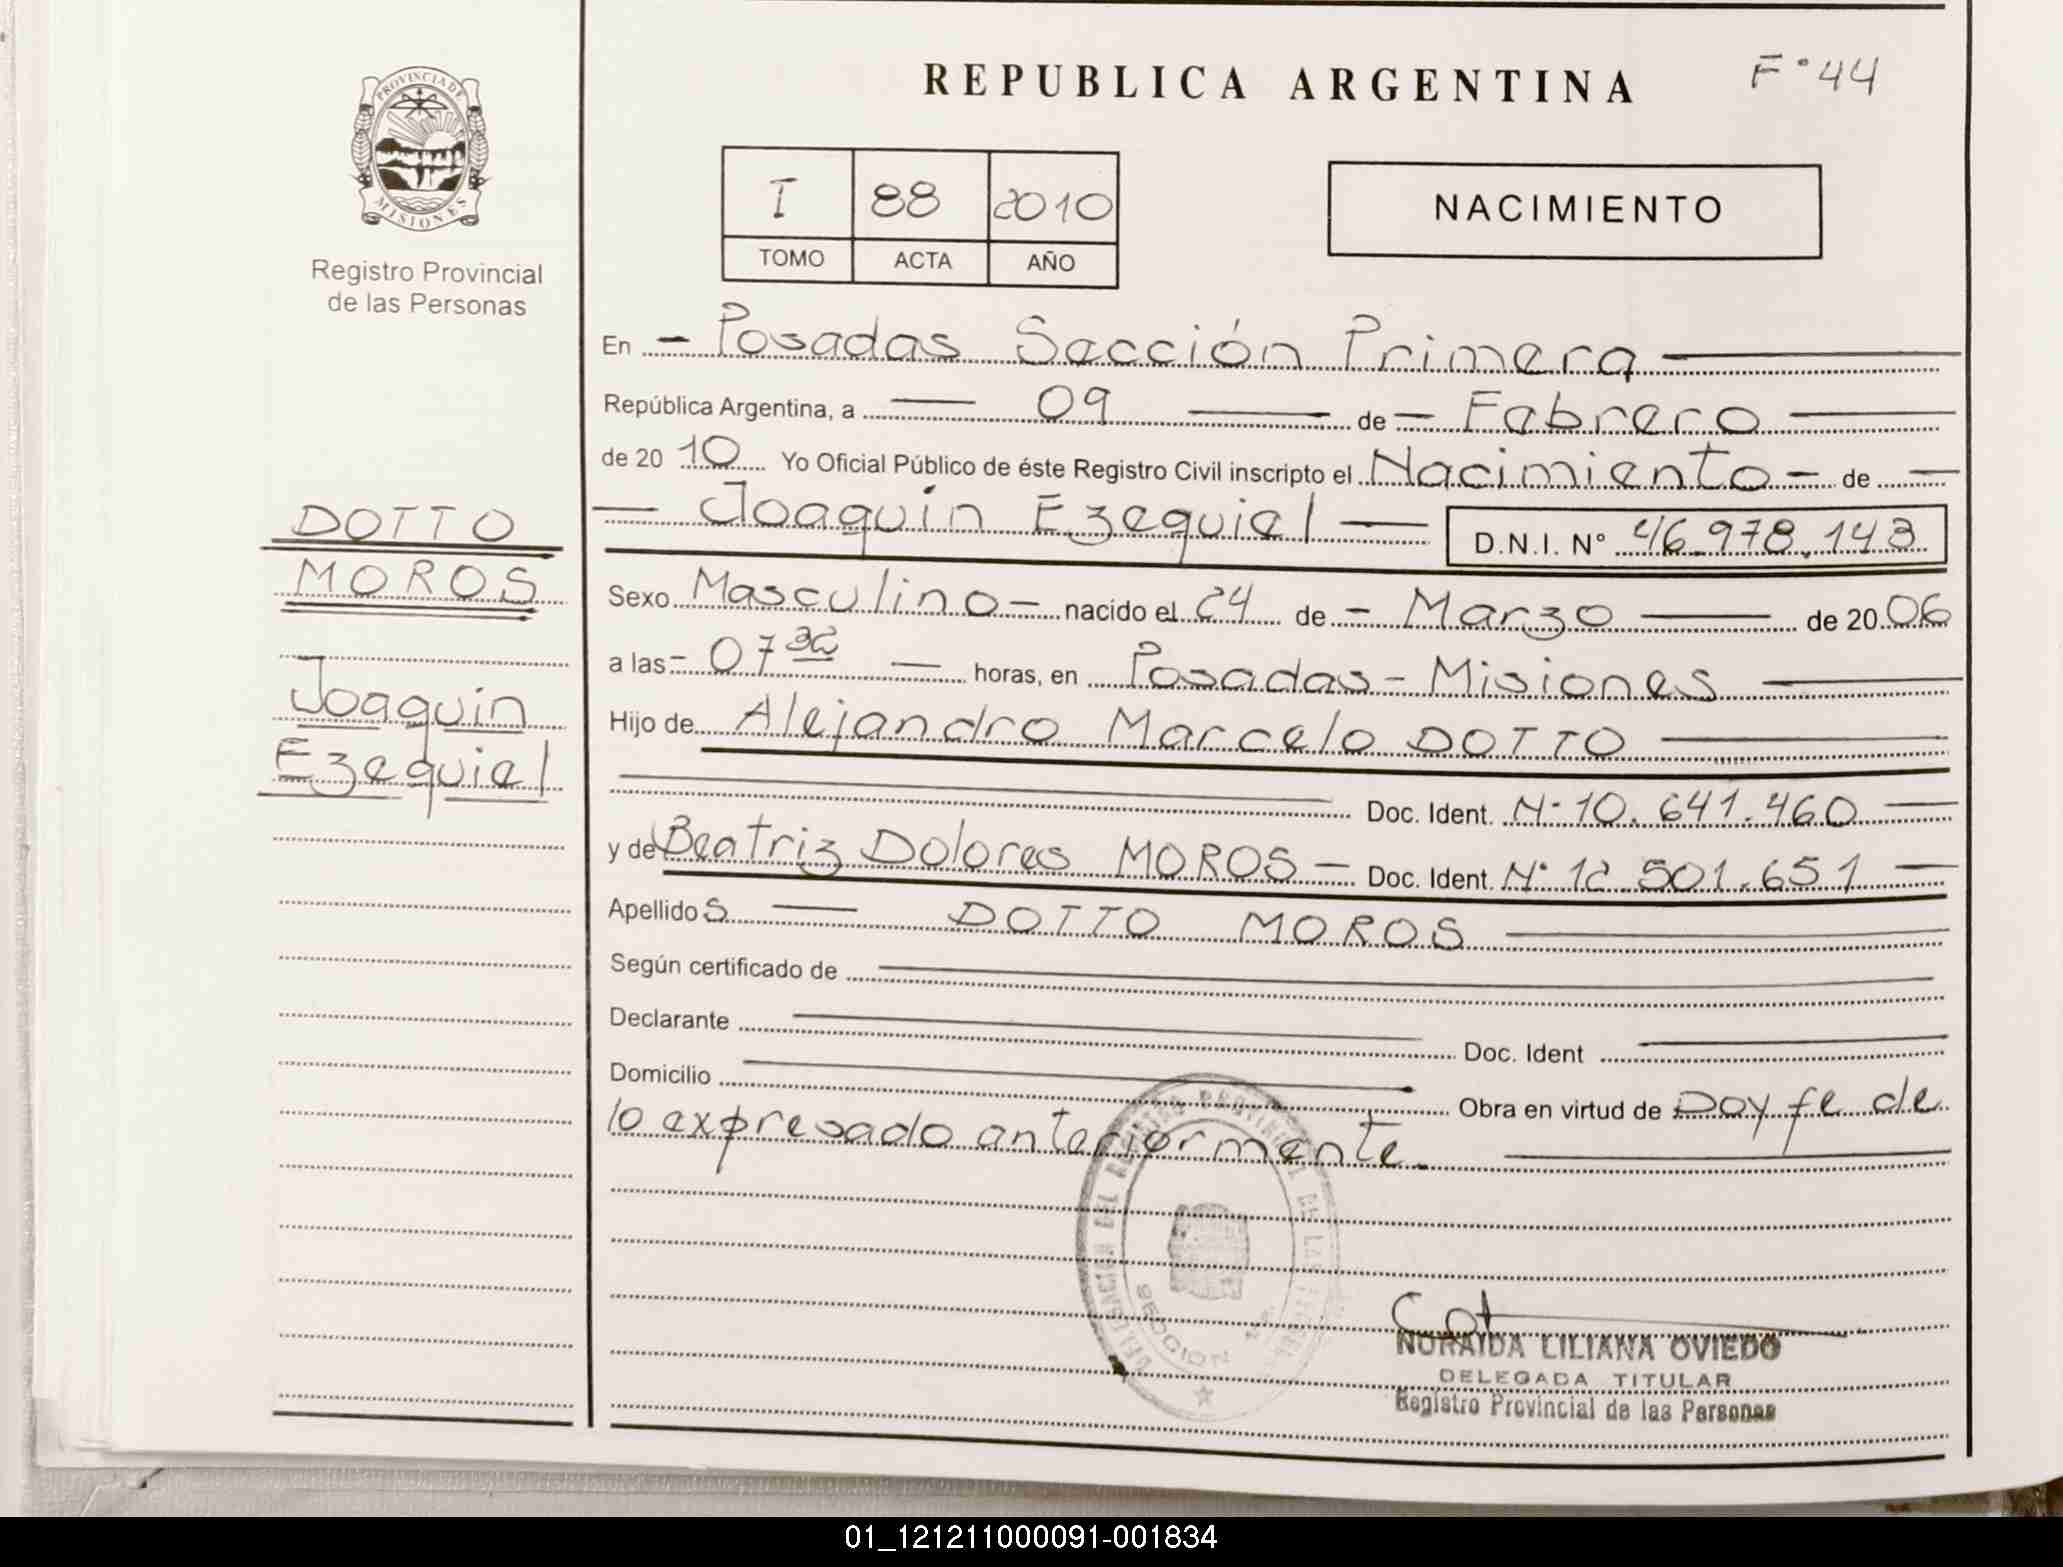 REPUBLICA ARGENTINA
F° 44
PROVINCIA DE
MISIONES
Registro Provincial
de las Personas
I 88 2010
TOMO ACTA AÑO
NACIMIENTO
En - Posadas Sección Primera
República Argentina, a 09 de - Febrero
de 20 10 Yo Oficial Público de éste Registro Civil inscripto el Nacimiento - de
Joaquín Ezequiel D.N.I. N° 46.978.143
DOTTO
MOROS
Joaquín
Ezequiel
Sexo Masculino - nacido el 24 de - Marzo de 20 06
a las - 07 horas, en Posadas - Misiones
Hijo de Alejandro Marcelo DOTTO
Doc. Ident. N° 10.641.460
y de Beatriz Dolores MOROS - Doc. Ident. N° 12 501.651
Apellido s DOTTO MOROS
Según certificado de
Declarante Doc. Ident
Domicilio Obra en virtud de Doy fe de
lo expresado anteriormente.
DELEGACION DEL REGISTRO PROVINCIAL DE LAS
SECCION
NORAIDA LILIANA OVIEDO
DELEGADA TITULAR
Registro Provincial de las Personas
01_121211000091-001834